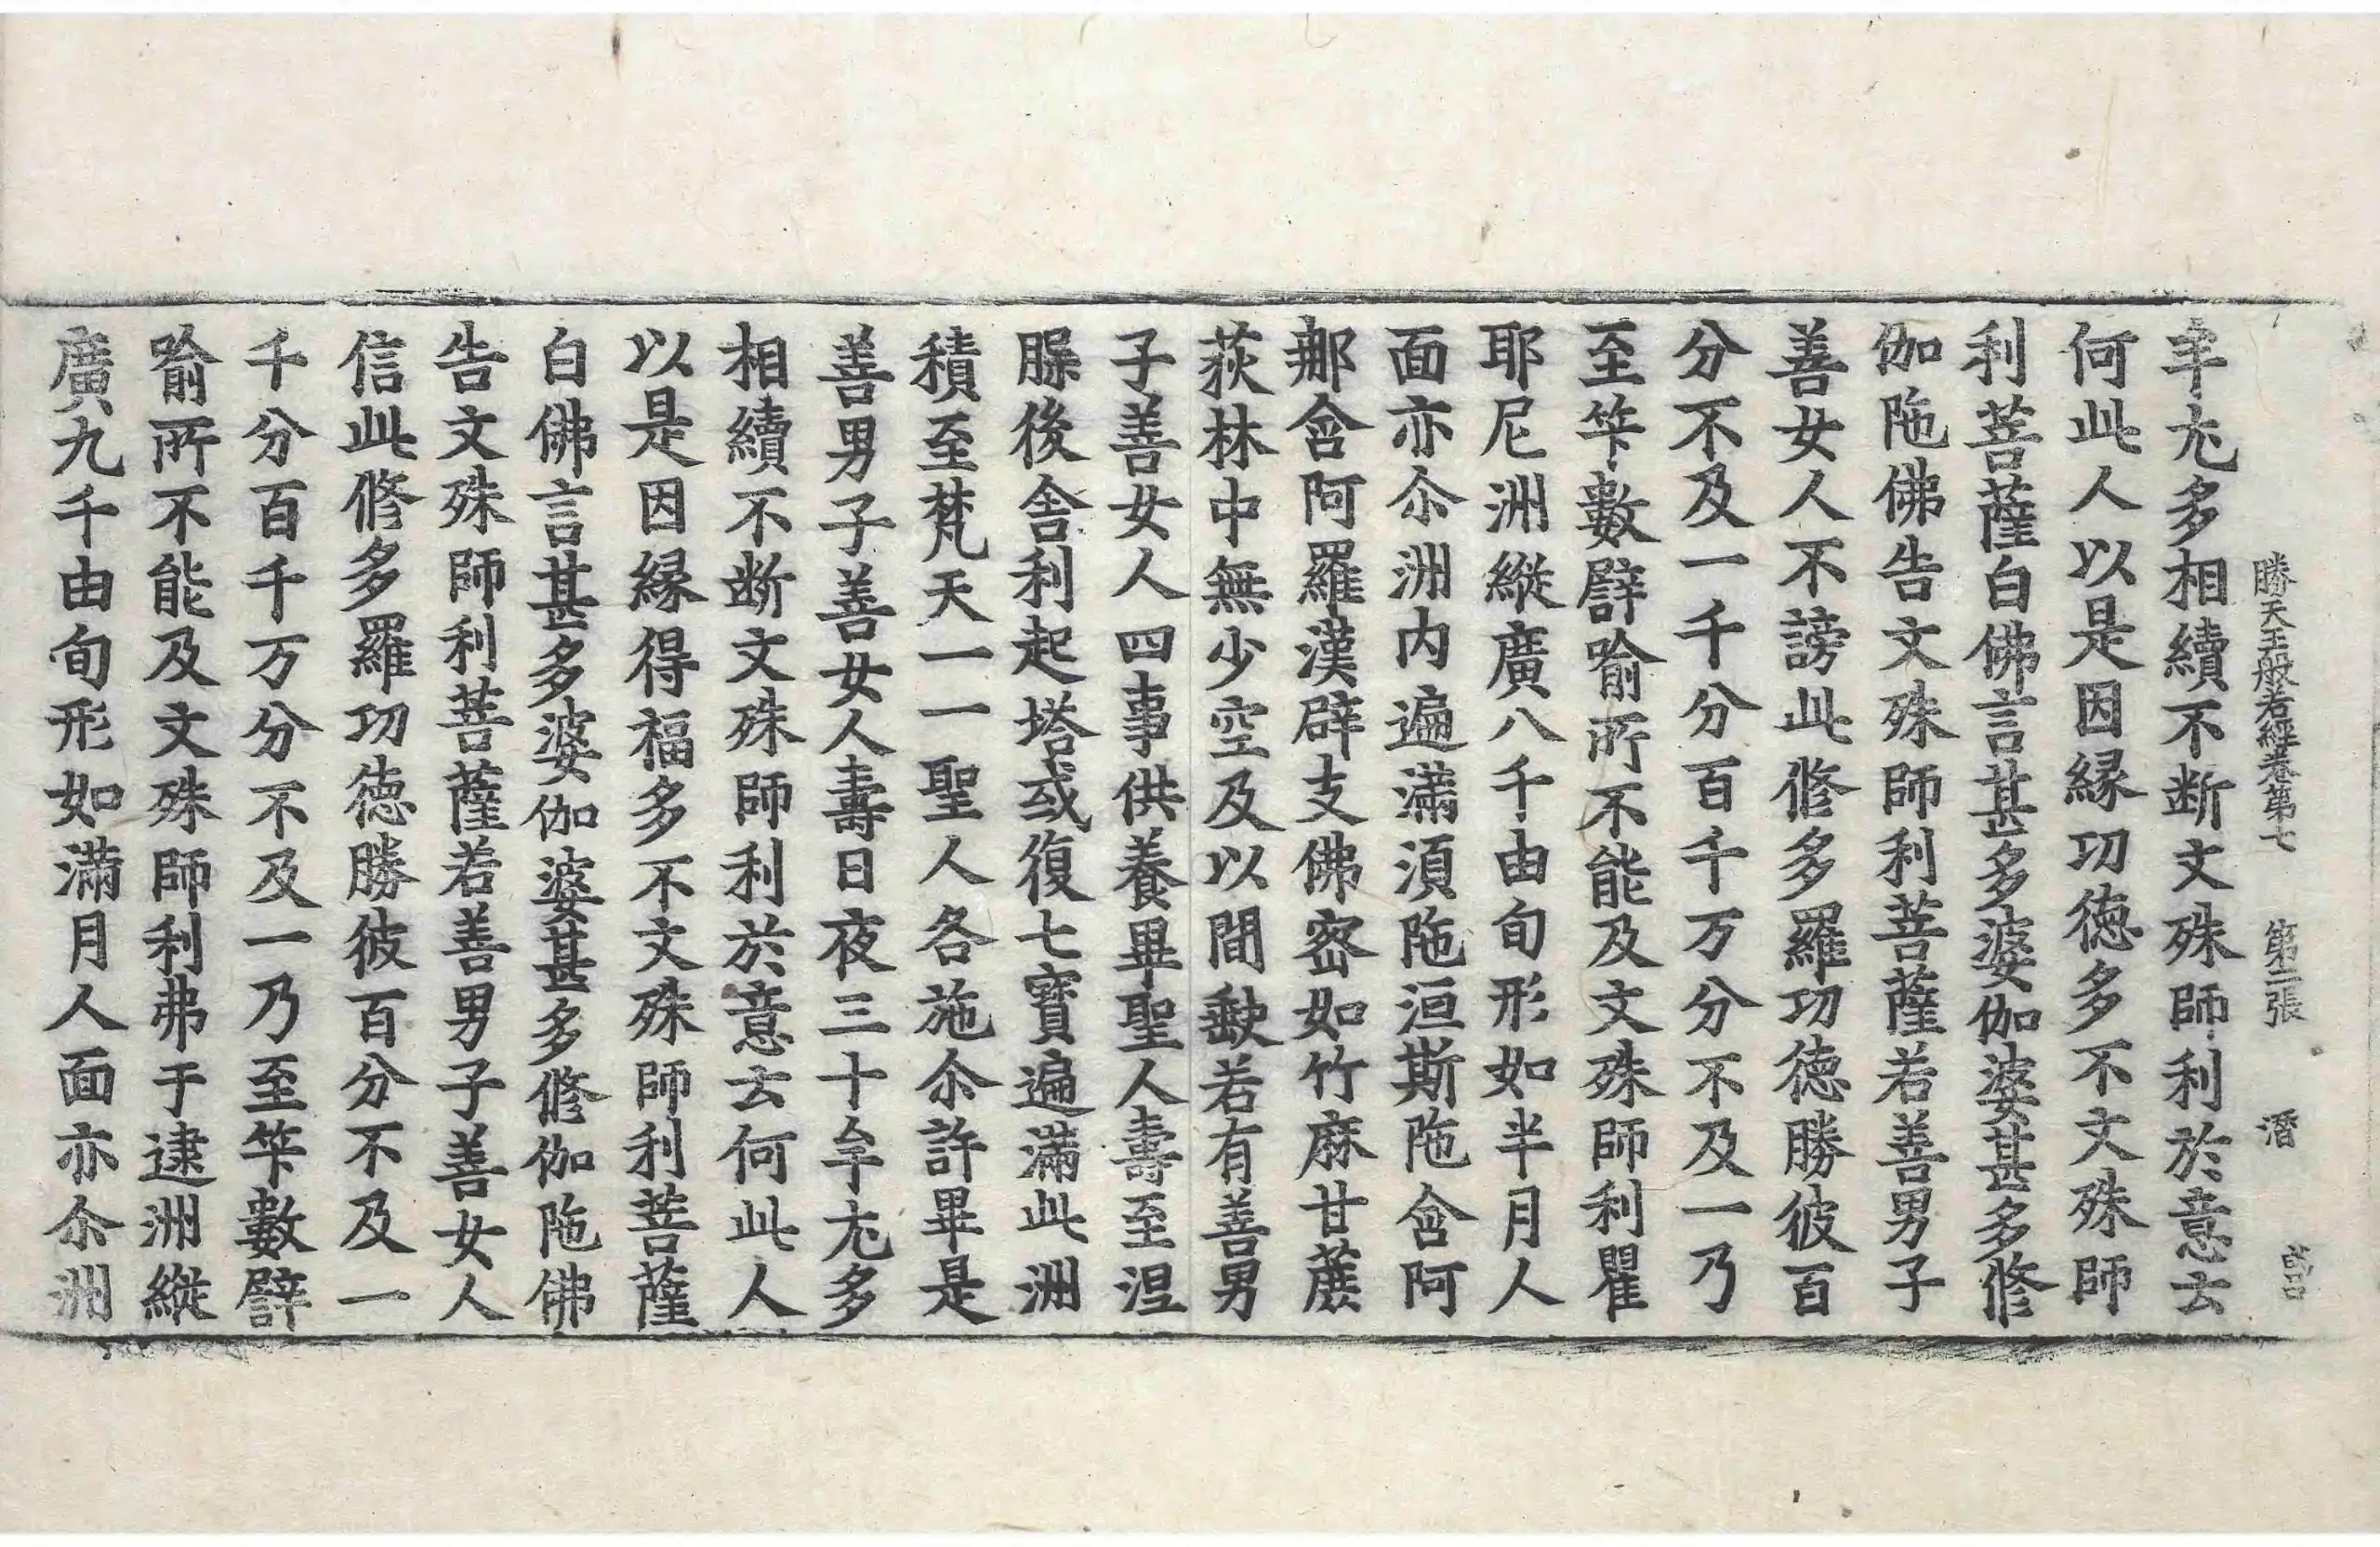 勝天王般若經卷第七 第二張 潛
𠦑尢多相續不断文殊師利於意云
何此人以是因縁功徳多不文殊師
利菩薩白佛言甚多婆伽婆甚多修
伽陁佛告文殊師利菩薩若善男子
善女人不謗此修多羅功徳勝彼百
分不及一千分百千万分不及一乃
至筭數譬喻所不能及文殊師利瞿
耶尼洲縱廣八千由旬形如半月人
面亦尒洲内遍滿湏陁洹斯陁含阿
那含阿羅漢辟支佛宻如竹麻甘蔗
荻林中無少空及以間㱃若有善男
子善女人四事供養畢聖人壽至涅
槃後舍利起塔或復七寳遍滿此洲
積至梵天一一聖人各施尒許畢是
善男子善女人壽日夜三十年尢多
相續不断文殊師利於意云何此人
以是因縁得福多不文殊師利菩薩
白佛言甚多婆伽婆甚多修伽陁佛
告文殊師利菩薩若善男子善女人
信此修多羅功徳勝彼百分不及一
千分百千万分不及一乃至筭數譬
喻所不能及文殊師利弗于逮洲縱
廣九千由旬形如滿月人面亦尒洲